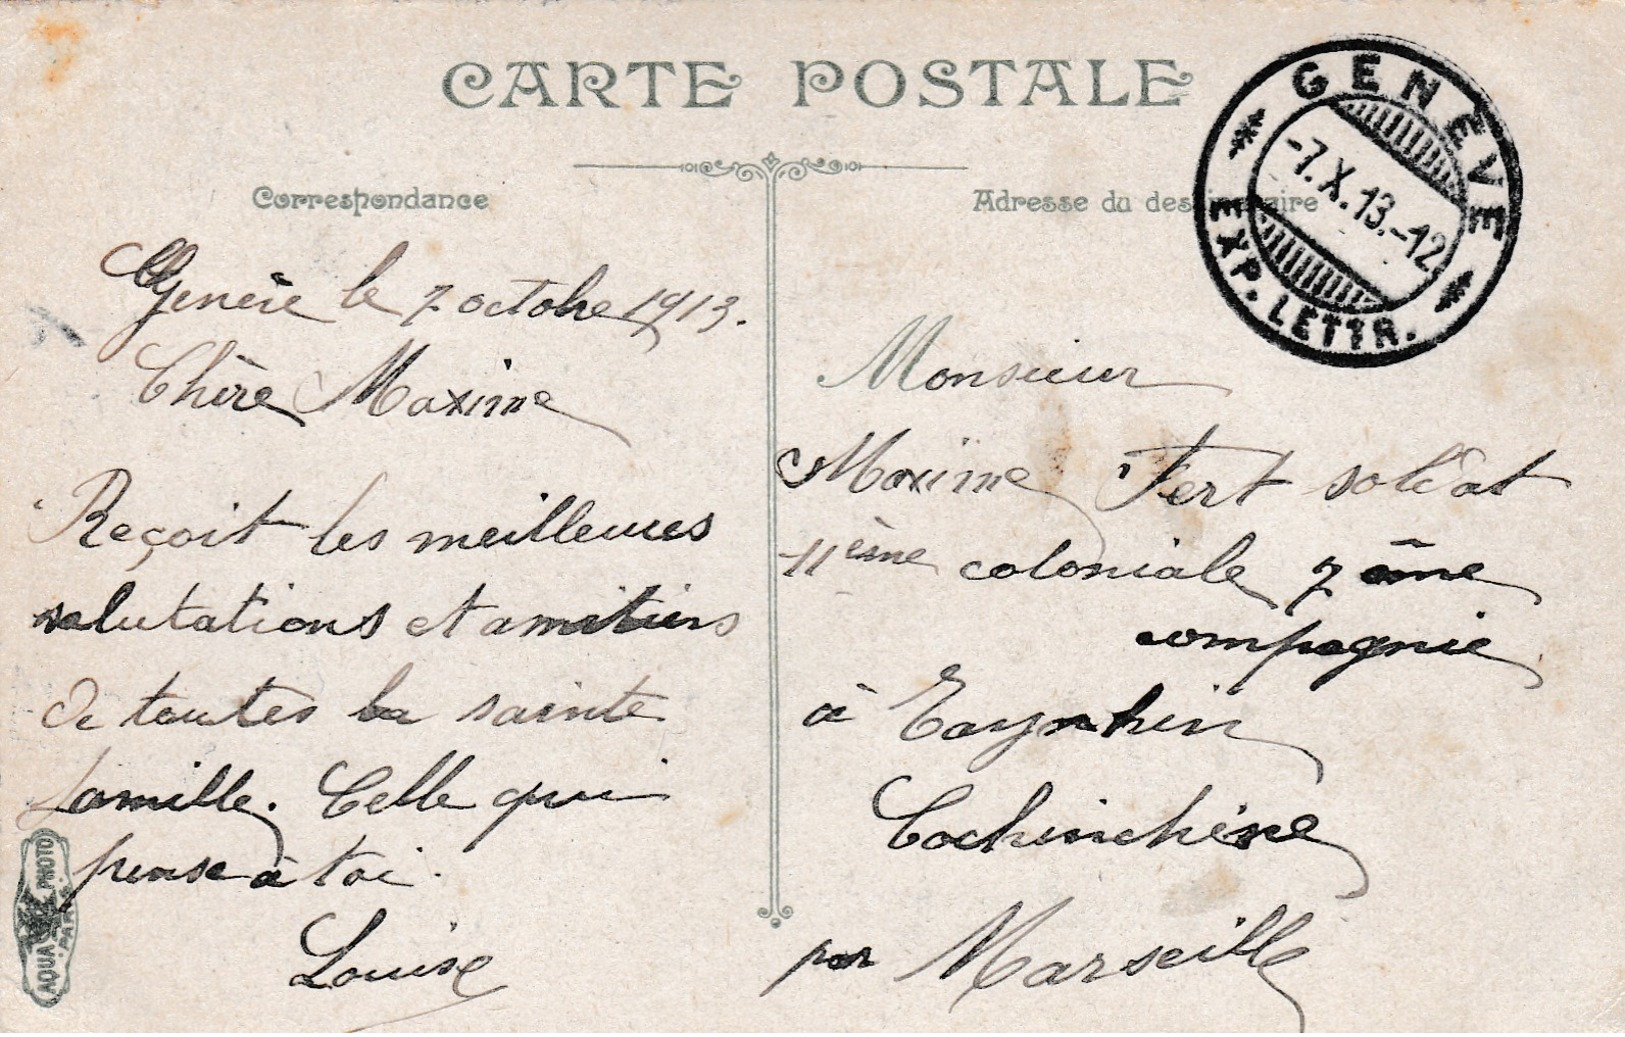 CARTE POSTALE
Correspondance
Genève le 7 octobre 1913.
Chère Maxime
Reçoit les meilleures
salutations et amitiers
de toutes la sainte
famille. Celle qui
pense à toi.
Louise
AQUA PHOTO
PARIS
GENÈVE
-7.X.13.-12
EXP. LETTR.
Adresse du destinataire
Monsieur
Maxime Fert soldat
11ème coloniale 7ème
compagnie
à Tayninhin
Cochinchine
par Marseille